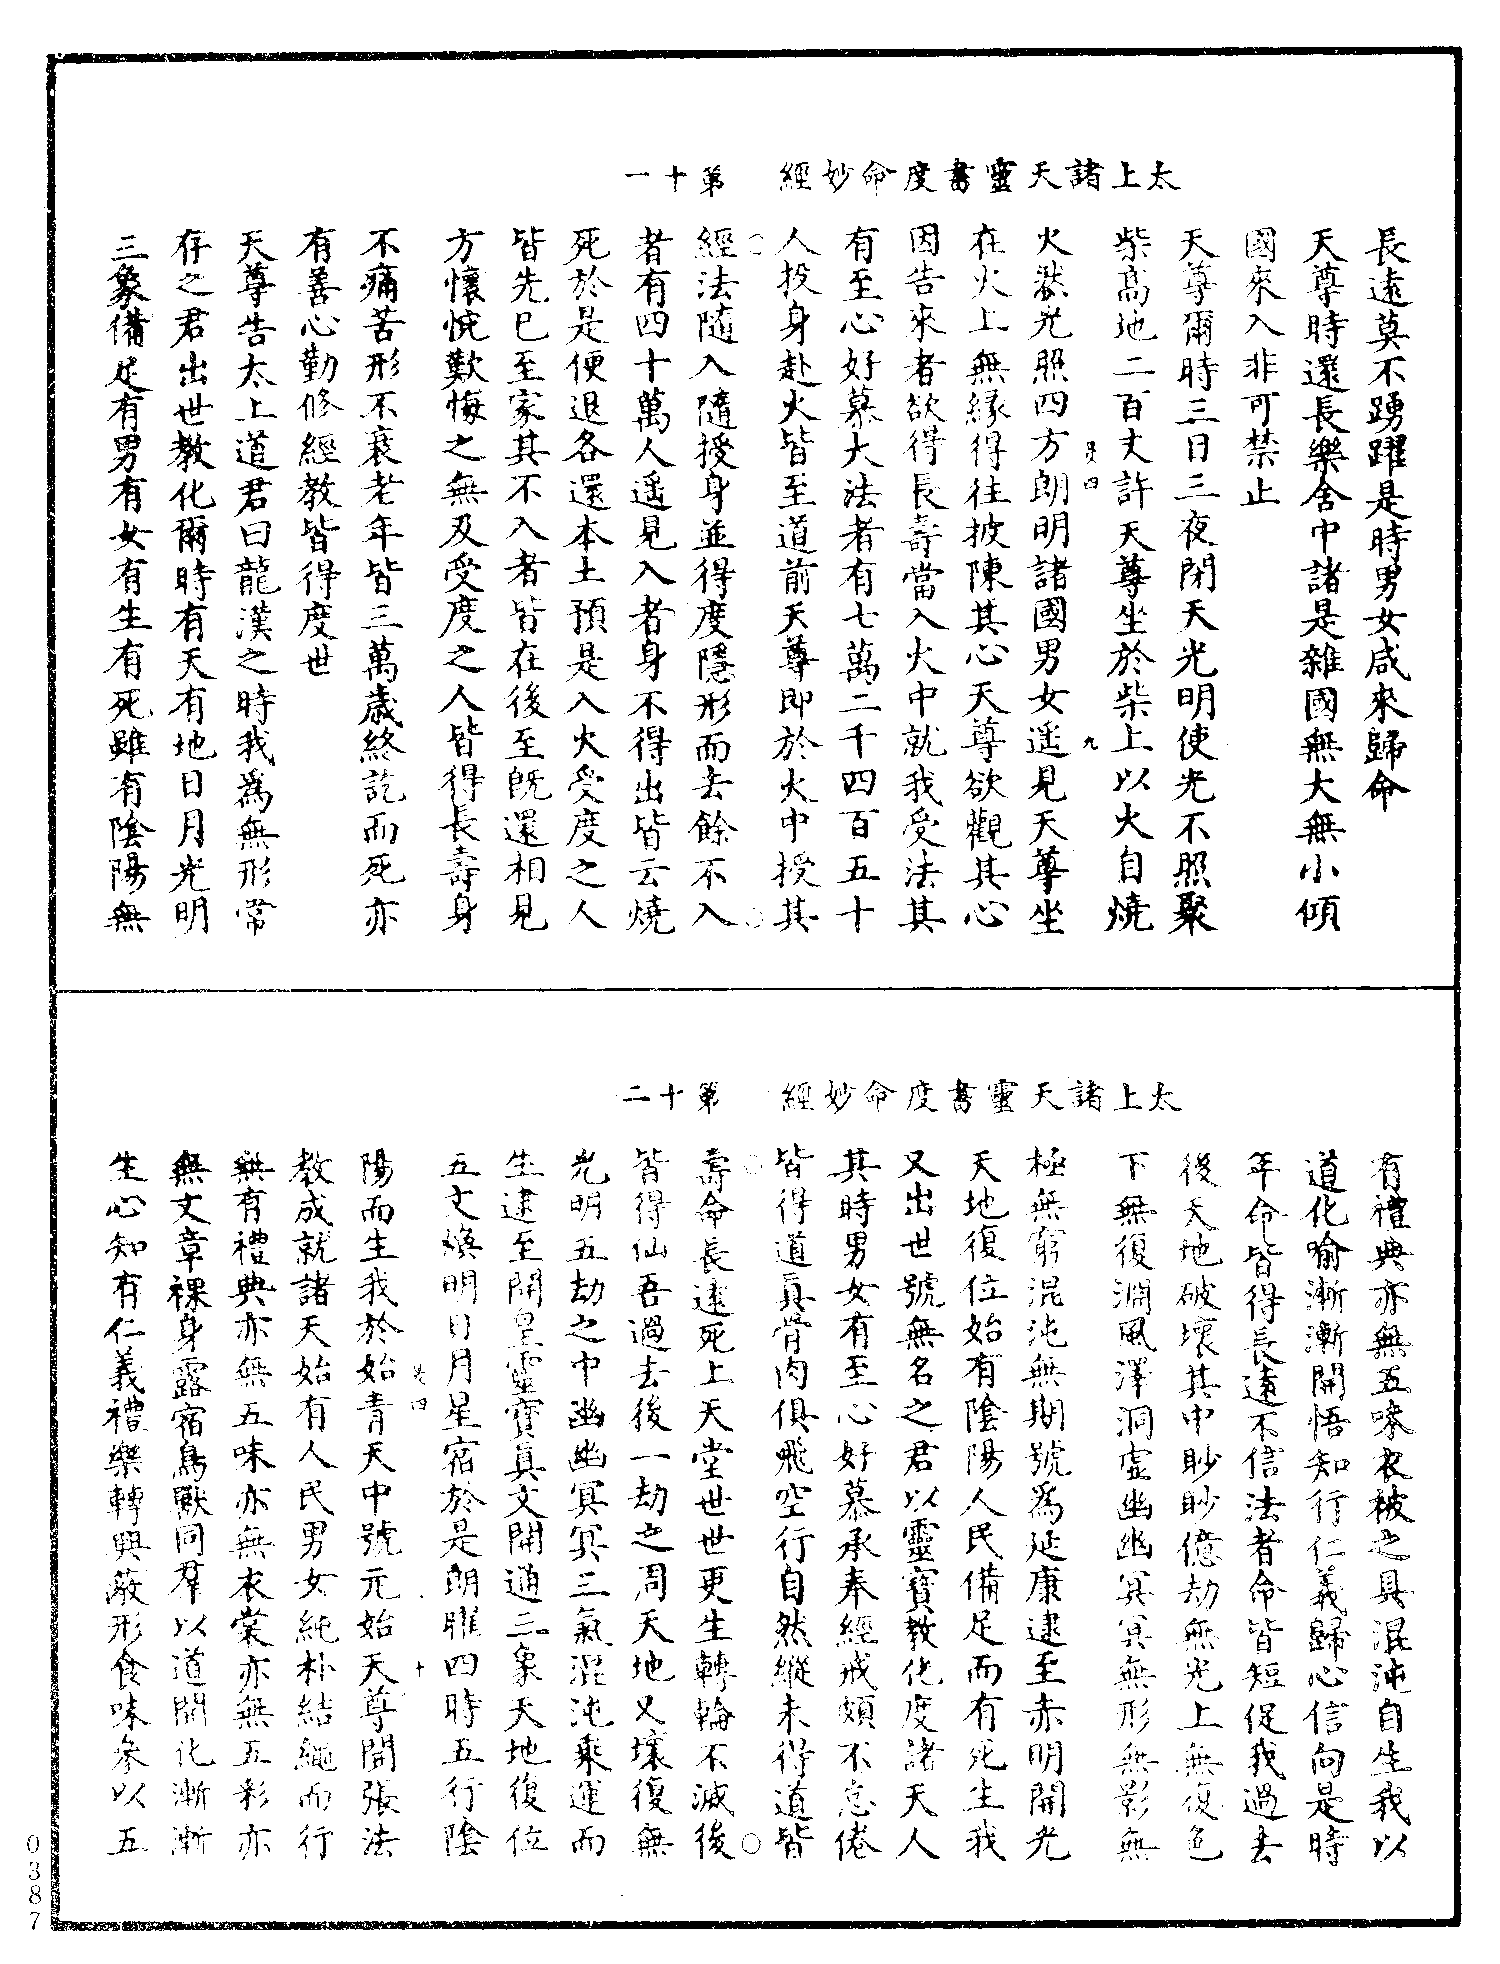 太上諸天靈書度命妙經　第十一
長遠莫不踴躍是時男女咸來歸命
天尊時還長樂舍中諸是雜國無大無小傾
國來入非可禁止
天尊爾時三日三夜閉天光明使光不照聚
柴高地二百丈許天尊坐於柴上以火自燒
良四　九
火然光照四方朗明諸國男女遥見天尊坐
在火上無緣得往披陳其心天尊欲觀其心
因告來者欲得長壽當入火中就我受法其
有至心好慕大法者有七萬二千四百五十
人投身赴火皆至道前天尊即於火中授其
經法隨入隨授身並得度隱形而去餘不入
者有四十萬人遥見入者身不得出皆云燒
死於是便退各還本土預是入火受度之人
皆先已至家其不入者皆在後至旣還相見
方懷悅歎悔之無及受度之人皆得長壽身
不痛苦形不衰老年皆三萬歲終訖而死亦
有善心勤修經教皆得度世
天尊告太上道君曰龍漢之時我爲無形常
存之君出世教化爾時有天有地日月光明
三象備足有男有女有生有死雖有陰陽無
太上諸天靈書度命妙經　第十二
有禮典亦無五味衣被之具混沌自生我以
道化喻漸漸開悟知行仁義歸心信向是時
年命皆得長遠不信法者命皆短促我過去
後天地破壞其中眇眇億劫無光上無復色
下無復淵風澤洞虛幽幽冥冥無形無影無
極無窮混沌無期號爲延康逮至赤明開光
天地復位始有陰陽人民備足而有死生我
又出世號無名之君以靈寶教化度諸天人
其時男女有至心好慕承奉經戒頗不怠倦
皆得道真骨肉俱飛空行自然縱未得道皆
壽命長遠死上天堂世世更生轉輪不滅後
皆得仙吾過去後一劫之周天地又壞復無
光明五劫之中幽幽冥冥三氣混沌乘運而
生逮至開皇靈寶真文開通三象天地復位
五文煥明日月星宿於是朗曜四時五行陰
陽而生我於始青天中號元始天尊開張法
良四　十
教成就諸天始有人民男女純朴結繩而行
無有禮典亦無五味亦無衣裳亦無五彩亦
無文章裸身露宿鳥獸同羣以道開化漸漸
生心知有仁義禮樂轉興蔽形食味參以五
0387